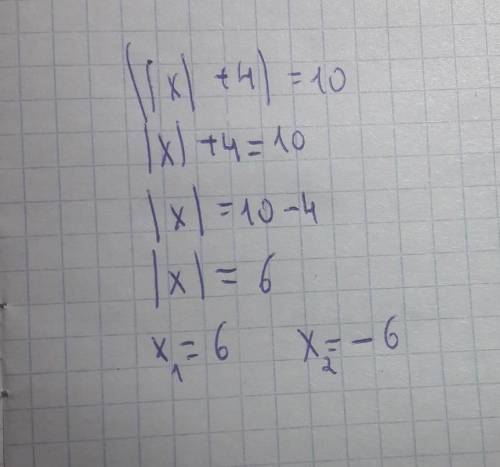 ||x| +4| = 10
|x| +4 = 10
|x| = 10 - 4
|x| = 6
x₁ = 6 x₂ = - 6